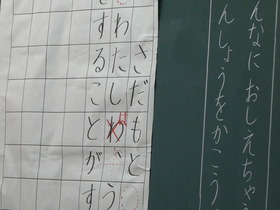 んなに おしえちゃう
んしょうをかこう
さだもと
わたしわ、う
することがす